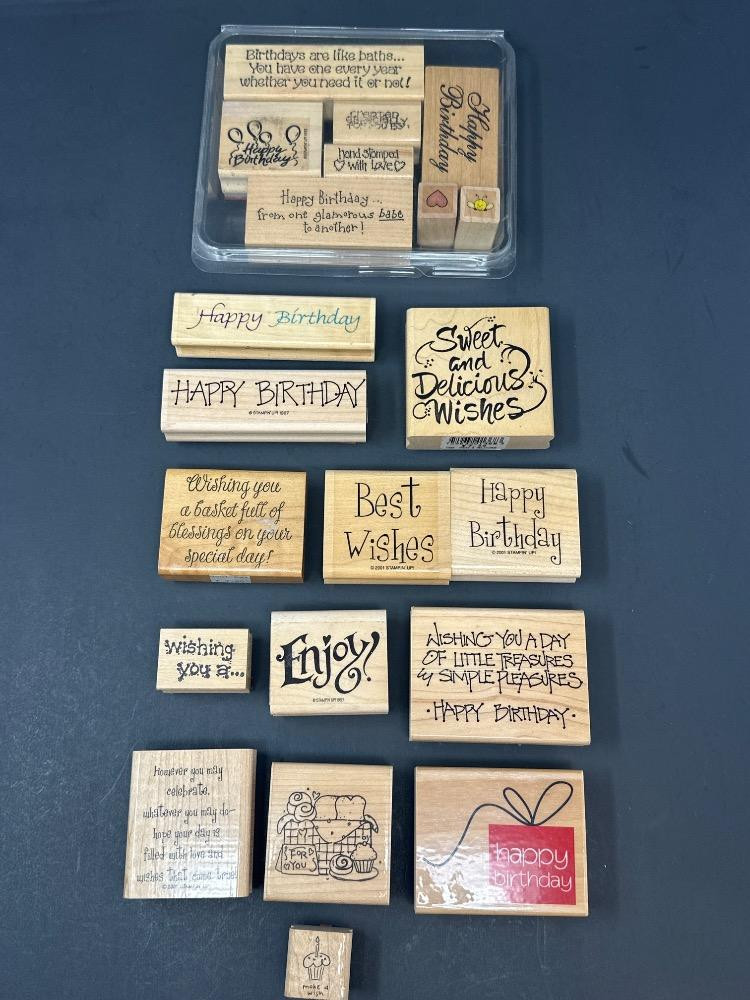 Birthdays are like baths...
You have one every year
whether you need it or not!
Happy
Birthday
Happy
Birthday
hand stamped
with love
Happy Birthday...
from one glamorous babe
to another!
Happy Birthday
HAPPY BIRTHDAY
© STAMPIN' UP! 1997
Sweet
and
Delicious
Wishes
Wishing you
a basket full of
blessings on your
special day!
Best
Wishes
© 2001 STAMPIN' UP!
Happy
Birthday
© 2001 STAMPIN' UP!
wishing
you a...
Enjoy!
© STAMPIN' UP! 1997
WISHING YOU A DAY
OF LITTLE TREASURES
& SIMPLE PLEASURES
·HAPPY BIRTHDAY·
However you may
celebrate,
whatever you may do—
hope your day is
filled with love and
wishes that come true!
FOR
YOU
happy
birthday
make a
wish